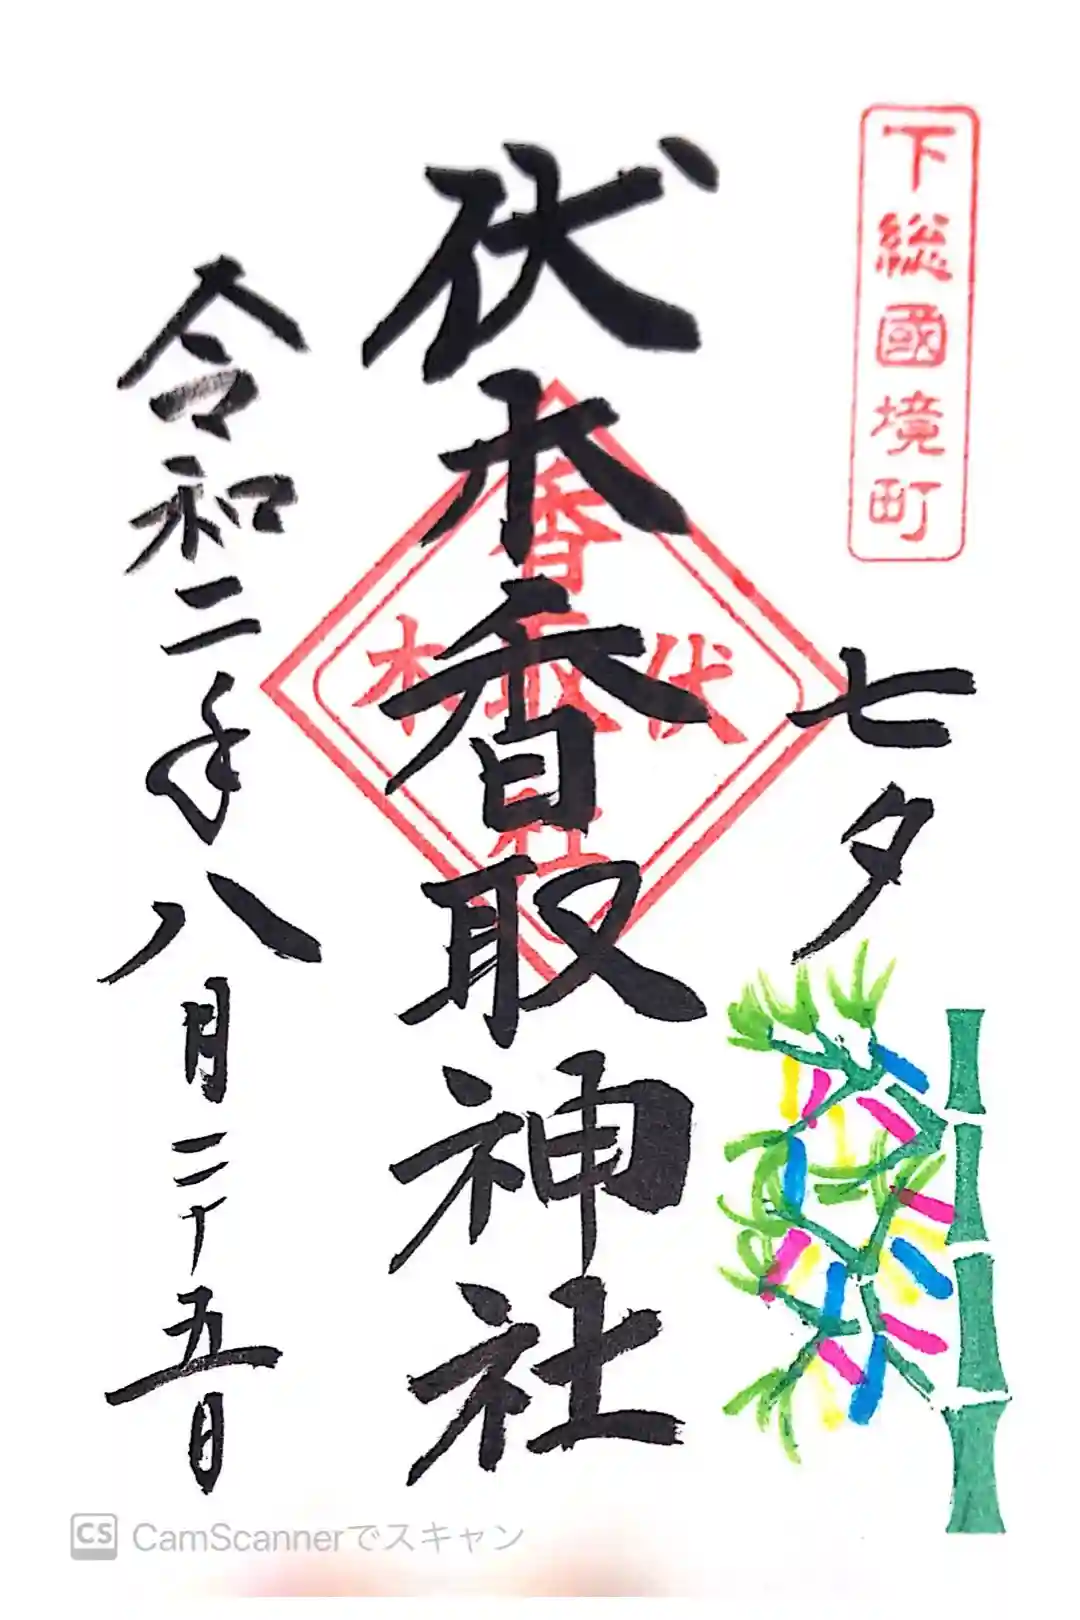 下総國境町
七夕
伏木香取神社
伏木香取社
令和二年八月二十五日
CS CamScannerでスキャン